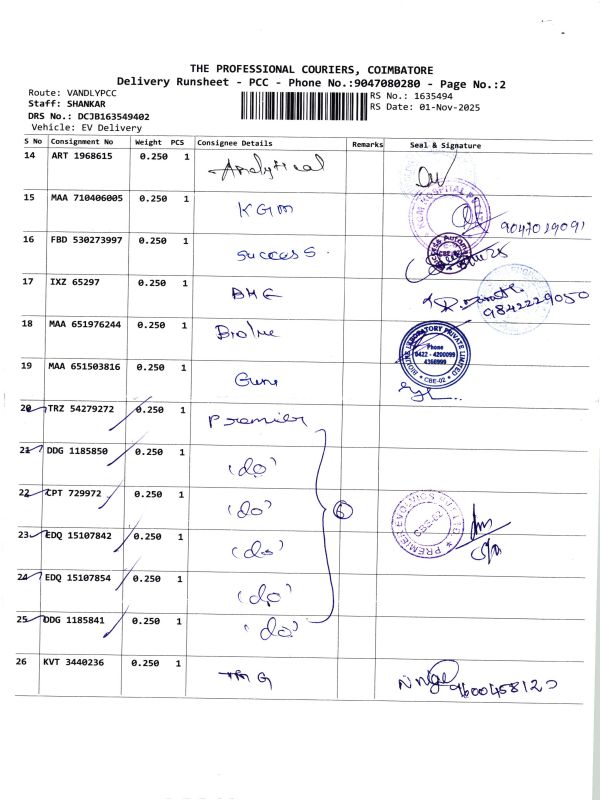 THE PROFESSIONAL COURIERS, COIMBATORE
Delivery Runsheet - PCC - Phone No.:9047080280 - Page No.:2
Route: VANDLYPCC
Staff: SHANKAR
DRS No.: DCJB163549402
Vehicle: EV Delivery
RS No.: 1635494
RS Date: 01-Nov-2025
S No Consignment No Weight PCS Consignee Details Remarks Seal & Signature
14 ART 1968615 0.250 1 Analytical
15 MAA 710406005 0.250 1 KGM
9047019091
16 FBD 530273997 0.250 1 success.
CBE-02
17 IXZ 65297 0.250 1
9842229050
18 MAA 651976244 0.250 1
LABORATORY PRIVATE LIMITED
Phone
0422 - 4200099
4366999
CBE-02
19 MAA 651503816 0.250 1
20 TRZ 54279272 0.250 1 Premier
21 DDG 1185850 0.250 1 (do)
22 CPT 729972 0.250 1 (do)
6
PREMIER EVOLVICS PVT LTD
CBE-02
23 EDQ 15107842 0.250 1 (do)
24 EDQ 15107854 0.250 1 (do)
25 DDG 1185841 0.250 1 (do)
26 KVT 3440236 0.250 1